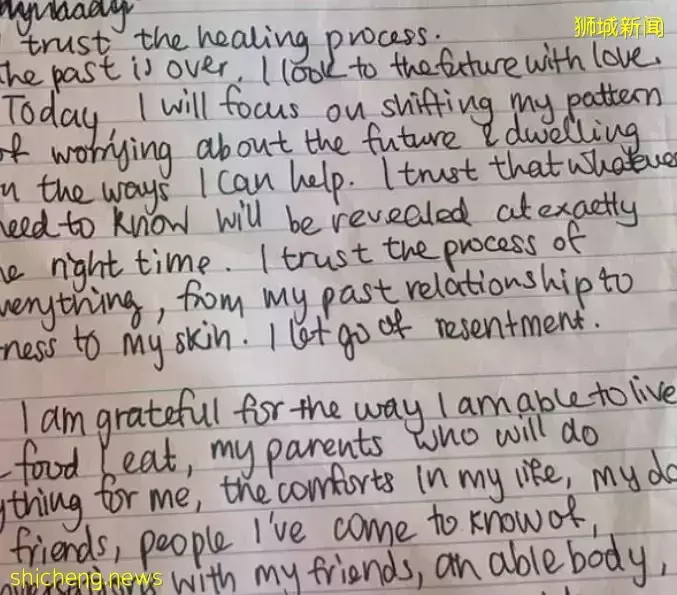 狮城新闻
trust the healing process.
he past is over. I look to the future with love.
Today, I will focus on shifting my pattern
of worrying about the future & dwelling
n the ways I can help. I trust that whatever
eed to know will be revealed at exactly
e right time. I trust the process of
verything, from my past relationship to
ness to my skin. I let go of resentment.
I am grateful for the way I am able to live
food I eat, my parents who will do
ything for me, the comforts in my life, my do
friends, people I've come to know of,
with my friends, an able body,
shicheng.news